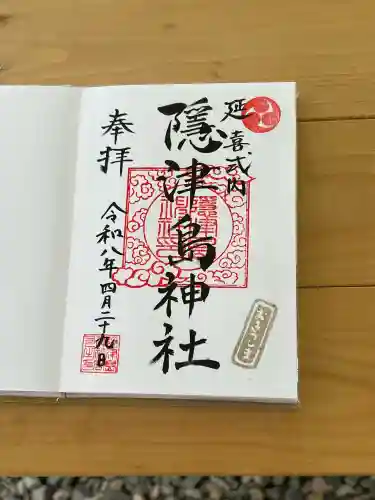 延喜式内
隠津島神社
奉拝
令和八年四月二十九日